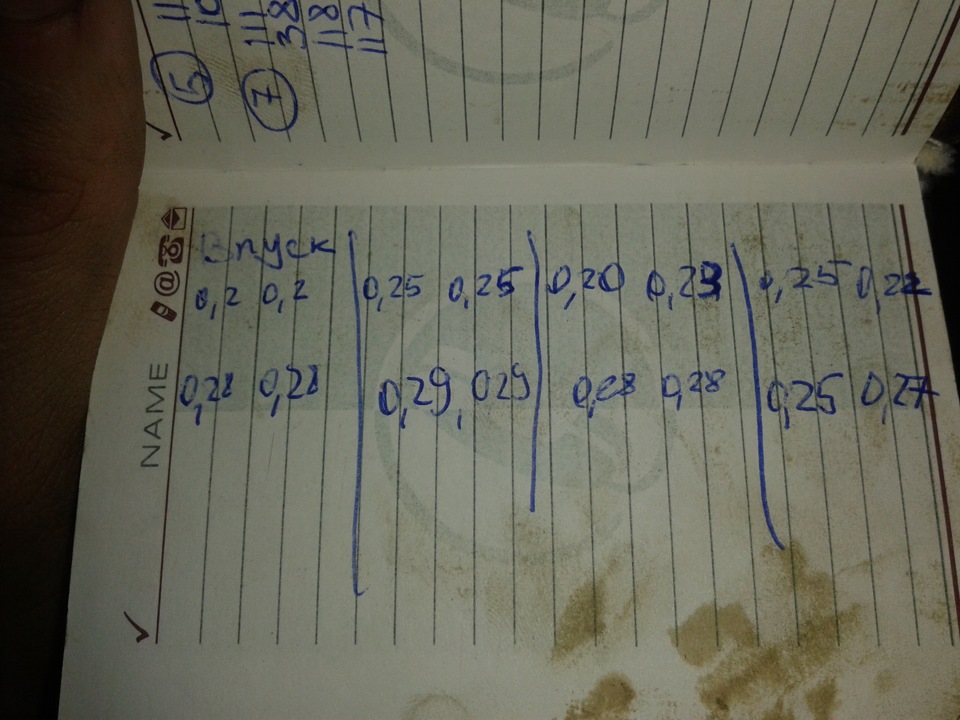 5 11 10
7 111 38 118 117
Впуск
0,2 0,2 | 0,25 0,25 | 0,20 0,23 | 0,25 0,22
0,28 0,28 | 0,29 0,29 | 0,28 0,28 | 0,25 0,27
NAME